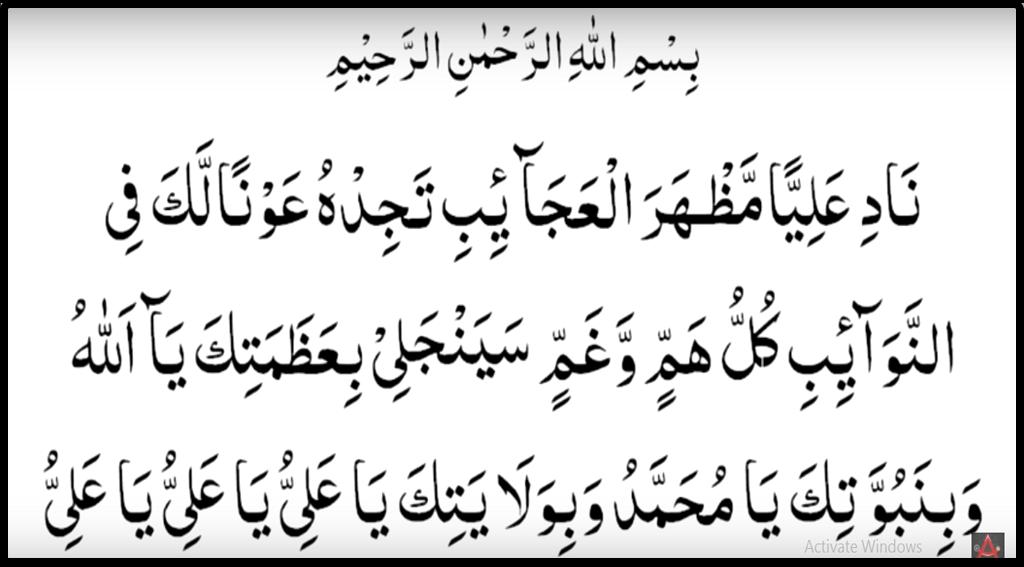 بِسْمِ اللّٰهِ الرَّحْمٰنِ الرَّحِيْمِ
نَادِ عَلِيًّا مَّظْهَرَ الْعَجَآئِبِ تَجِدْهُ عَوْنًا لَّكَ فِي
النَّوَآئِبِ كُلُّ هَمٍّ وَّغَمٍّ سَيَنْجَلِيْ بِعَظَمَتِكَ يَآ اَللّٰهُ
وَبِنَبُوَّتِكَ يَا مُحَمَّدُ وَبِوَلَا يَتِكَ يَا عَلِيُّ يَا عَلِيُّ يَا عَلِيُّ
Activate Windows